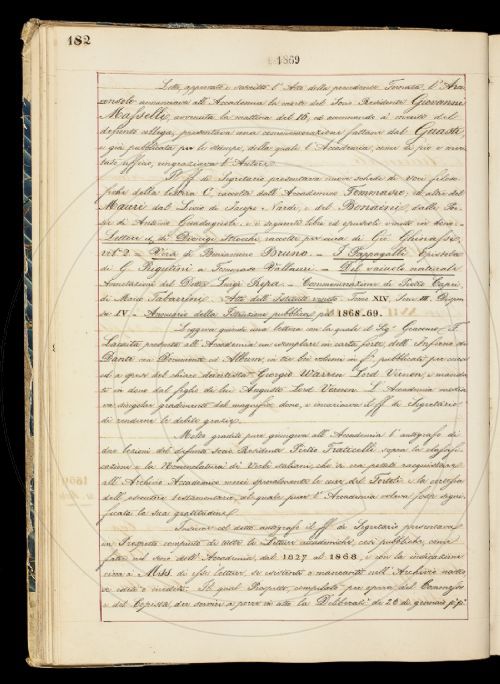 182
1869
Letto, approvato e sottoscritto l'Atto della precedente Tornata, l'Arci-
consolo annunciava all'Accademia la morte del Socio Residente Giovanni
Masselli, avvenuta la mattina del 16, ed
defunto collega, presentava una commemorazione fattane dal Guasti,
e già pubblicata per le stampe, della quale l'Accademia, come di pio e
tato ufficio, ringraziava l'Autore.
Il ff. di Segretario presentava nuove schede di voci filoso-
fiche della lettera C, raccolte dall'Accademico Tommaseo, ed altre del
Mauri dal Livio di Jacopo Nardi, e del Bonaini dalle
di Antonio Guadagnoli, e i seguenti libri ed opuscoli venuti in dono:
Lettere di Dionigi Strocchi raccolte per cura di Gio. Ghinassi,
vol. 2 — Vita di Beniamino Bruno — I Pappagalli Epistola
di G. Pizzolini a Tommaso Vallauri — Del vaiuolo naturale
Annotazioni del Dott. Luigi Ripa — Commemorazione di Pietro Capei,
di Marco Tabarrini — Atti dell'Istituto veneto Tomo XIV, Serie III. Dispen-
sa IV — Annuario della Istruzione pubblica pel 1868-69.
Leggeva quindi una lettera con la quale il Sig. Giacomo F.
Lacaita presenta all'Accademia un esemplare in carta forte, dell'Inferno di
Dante con Documenti ed Album, in tre bei volumi in f.° pubblicati per cura
ed a spese del chiaro dantista Giorgio Warren Lord Vernon, e manda-
to in dono dal figlio di lui Augusto Lord Vernon. L'Accademia mostra-
va singolar gradimento del magnifico dono, e incaricava il ff. di Segretario
di renderne le debite grazie.
Molto gradito pure giungeva all'Accademia l'autografo di
due lezioni del defunto Socio Residente Pietro Fraticelli, sopra la classifi-
cazione e la Nomenclatura di Verbi italiani, che si era potuto racquistare
all'Archivio Accademico mercè specialmente le cure del Tortoli e la cortesia
dell'esecutore testamentario, al quale pure l'Accademia voleva fosse signi-
ficata la sua gratitudine.
Insieme col detto autografo il ff. di Segretario presentava
un Prospetto compiuto di tutte le Letture accademiche, così pubbliche, come
fatte nel seno dell'Accademia, dal 1827 al 1868, e con la indicazione
circa a Mss. di esse letture, se esistenti o mancanti nell'Archivio nostro,
se edite o inedite. Il qual Prospetto, compilato per opera del
e del Copista, dee servire a porre in atto la Deliberaz.e de' 26 di gennaio p.p.